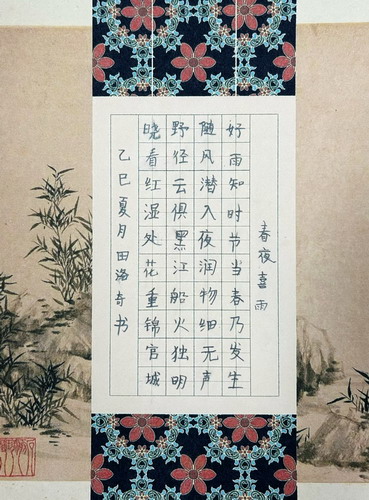 春夜喜雨
好雨知时节当春乃发生
随风潜入夜润物细无声
野径云俱黑江船火独明
晓看红湿处花重锦官城
乙巳夏月田洛奇书